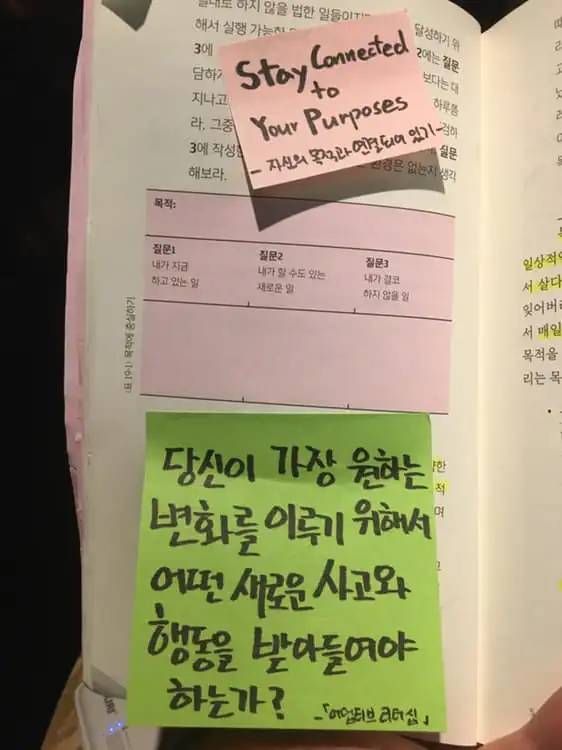 절대로 하지 않을 법한 일들이지
달성하기 위
해서 실행 가능한
2에는 질문
3에
보다는 대
담하
지나고
하루쯤
라. 그중
검하
3에 작성한
질문
환경은 없는지 생각
해보라.
Stay Connected
to
Your Purposes
- 자신의 목적과 연결되어 있기 -
목적:
질문1
내가 지금
하고 있는 일
질문2
내가 할 수도 있는
새로운 일
질문3
내가 결코
하지 않을 일
〈표 19-1〉 목적에 충실하기
당신이 가장 원하는
변화를 이루기 위해서
어떤 새로운 사고와
행동을 받아들여야
하는가?
-「어댑티브 리더십」
한
적
며
일상적
서 살다
잊어버
서 매일
목적을
리는 목